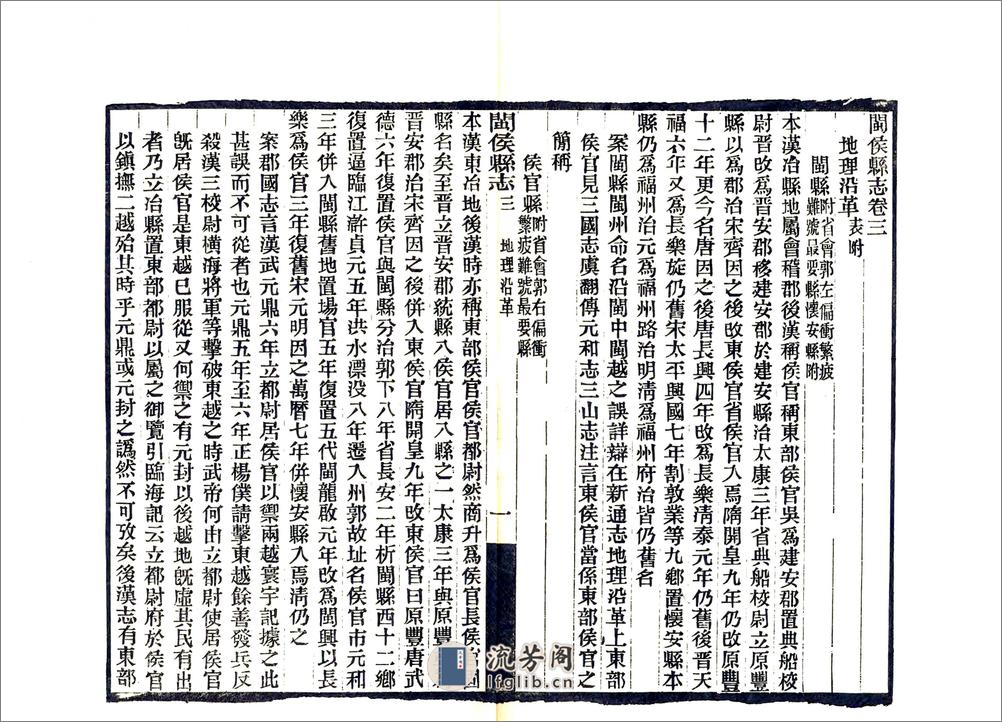 閩侯縣志卷三
地理沿革表附
閩縣附省會郭左偏衝繁疲
難號最要縣懷安縣附
本漢冶縣地屬會稽郡後漢稱侯官稱東部侯官吳爲建安郡置典船校
尉晉改爲晉安郡移建安郡於建安縣治太康三年省典船校尉立原豐
縣以爲郡治宋齊因之後改東侯官省侯官入焉隋開皇九年仍改原豐
十二年更今名唐因之後唐長興四年改爲長樂淸泰元年仍舊後晉天
福六年又爲長樂旋仍舊宋太平興國七年割敦業等九鄉置懷安縣本
縣仍爲福州治元爲福州路治明淸爲福州府治皆仍舊名
案閩縣閩州命名沿閩中閩越之誤詳辯在新通志地理沿革上東部
侯官見三國志虞翻傳元和志三山志注言東侯官當係東部侯官之
簡稱
侯官縣附省會郭右偏衝
繁疲難號最要縣
閩侯縣志 三 地理沿革 一
本漢東冶地後漢時亦稱東部侯官侯官都尉然商升爲侯官長侯官固
縣名矣至晉立晉安郡統縣八侯官居八縣之一太康三年與原豐
晉安郡治宋齊因之後併入東侯官隋開皇九年改東侯官曰原豐唐武
德六年復置侯官與閩縣分治郭下八年省長安二年析閩縣西十二鄉
復置逼臨江滸貞元五年洪水漂没八年遷入州郭故址名侯官市元和
三年併入閩縣舊地置場官五年復置五代閩龍啟元年改爲閩興以長
樂爲侯官三年復舊宋元明因之萬曆七年併懷安縣入焉淸仍之
案郡國志言漢武元鼎六年立都尉居侯官以禦兩越寰宇記據之此
甚誤而不可從者也元鼎五年至六年正楊僕請擊東越餘善發兵反
殺漢三校尉橫海將軍等擊破東越之時武帝何由立都尉使居侯官
旣居侯官是東越已服從又何禦之有元封以後越地旣虛其民有出
者乃立冶縣置東部都尉以屬之御覽引臨海記云立都尉府於侯官
以鎮撫二越殆其時乎元鼎或元封之譌然不可攷矣後漢志有東部
流芳阁
lfglib.cn